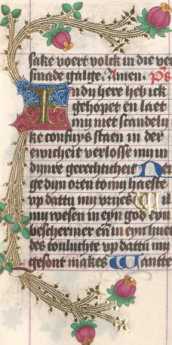 sake voert volck in die ver
smade galge. Amen. Ps
In dy here heb ick
gehopet en laet
my niet scandely
ke confuys staen in der
ewicheit verlosse my in
dynre gerechticheit Ne
ge dyn oren to my haeste
up dattu my
my wesen in eyn god eyn
beschermer en in eyn huis
des toulucht up dattu my
gesont makes Wantte